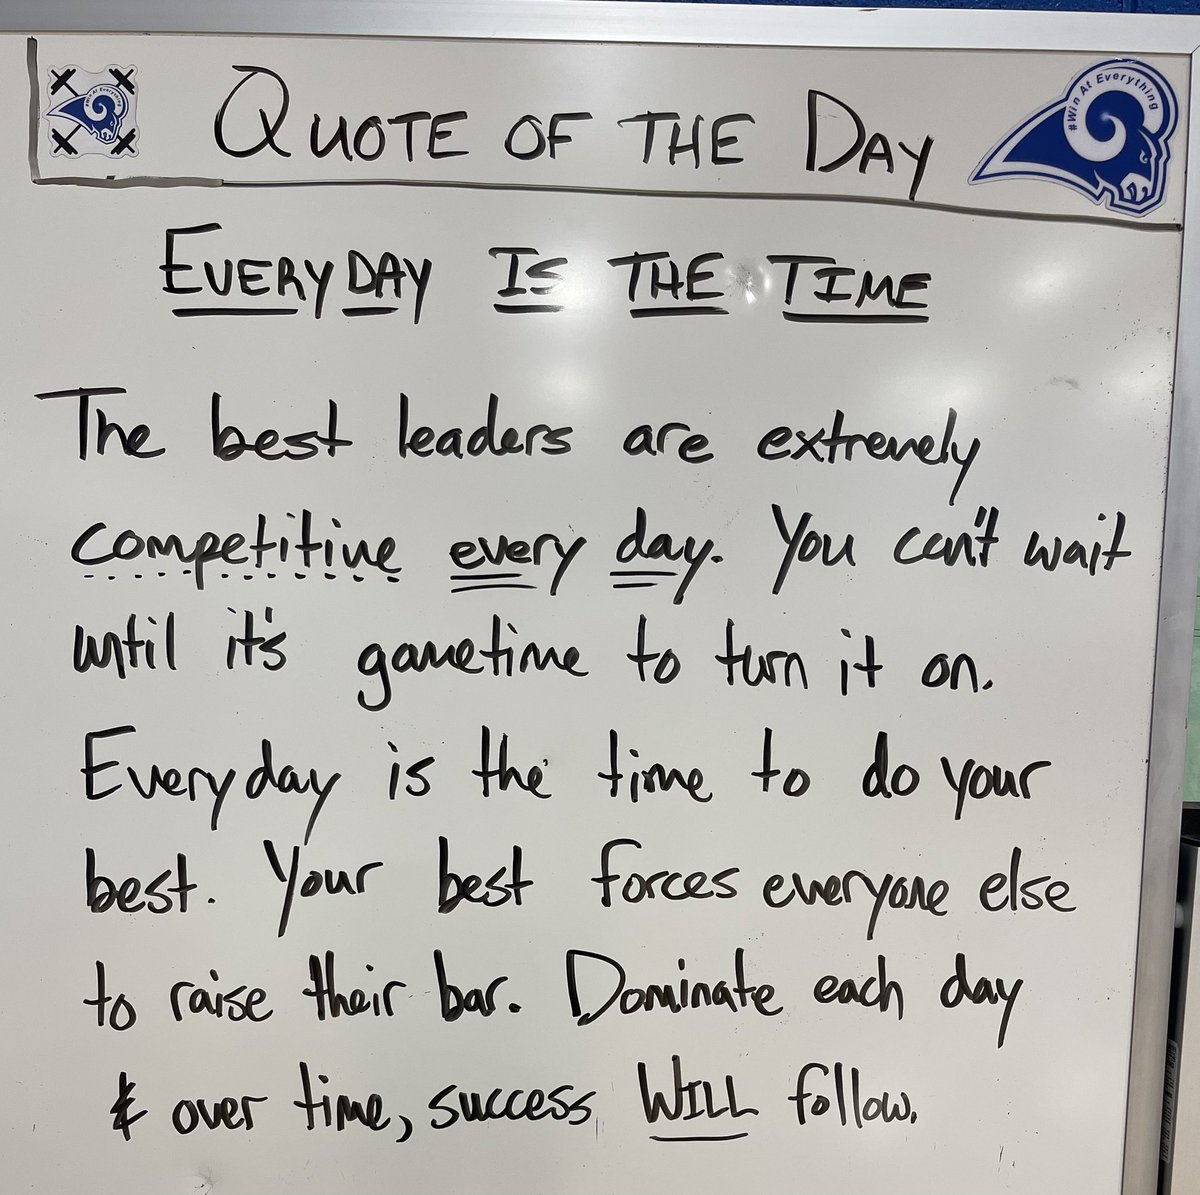 QUOTE OF THE DAY
#Win At Everything
EVERYDAY IS THE TIME
The best leaders are extremely
competitive every day. You can't wait
until it's gametime to turn it on.
Everyday is the time to do your
best. Your best forces everyone else
to raise their bar. Dominate each day
& over time, success WILL follow.